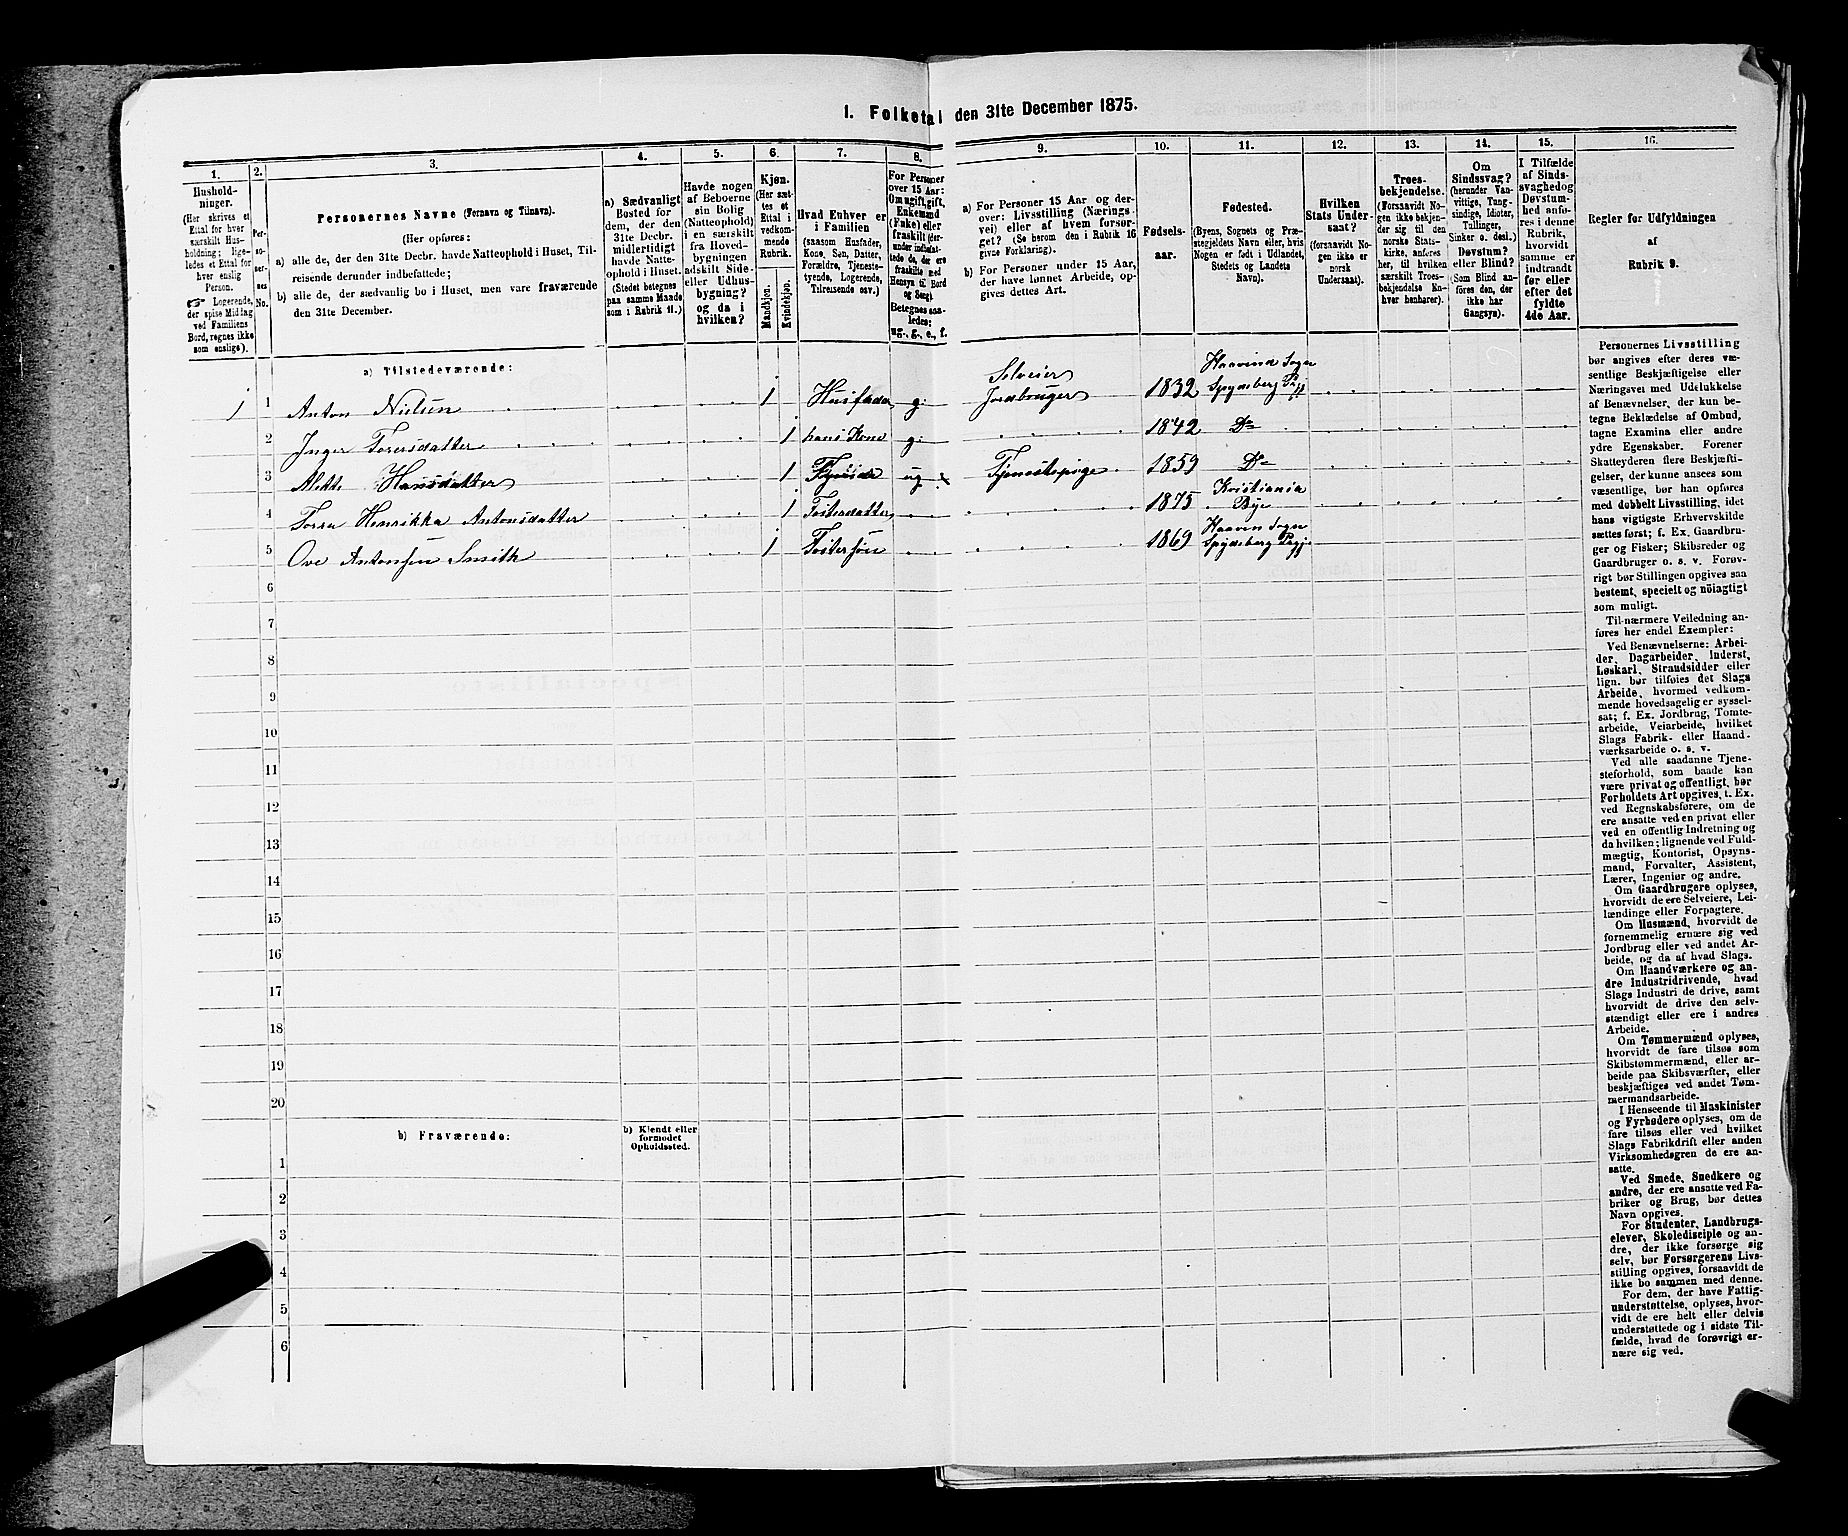 1. Folketal den 31te December 1875.
1.
Hushold-
ninger.
(Her skrives et
Ettal for hver
særskilt Hus-
holdning; lige-
ledes et Ettal for
hver enslig
Person.
Logerende,
der spise Middag
ved Familiens
Bord, regnes ikke
som enslige).
2.
Per-
so-
ner-
nes
No.
3.
Personernes Navne (Fornavn og Tilnavn).
(Her opføres:
a) alle de, der den 31te Decbr. havde Natteophold i Huset, Til-
reisende derunder indbefattede;
b) alle de, der sædvanlig bo i Huset, men vare fraværende
den 31te December.
4.
a) Sædvanligt
Bosted for
dem, der den
31te Decbr.
midlertidigt
havde Natte-
ophold i Huset.
(Stedet betegnes
paa samme Maade
som i Rubrik 11.)
5.
Havde nogen
af Beboerne
sin Bolig
(Natteophold)
i en særskilt
fra Hoved-
bygningen
adskilt Side-
eller Udhus-
bygning?
og da i
hvilken?
6.
Kjøn.
(Her sæt-
tes et
Ettal i
vedkom-
mende
Rubrik.
Mandkjøn.
Kvindekjøn.
7.
Hvad Enhver er
i Familien
(saasom Husfader,
Kone, Søn, Datter,
Forældre, Tjeneste-
tyende, Logerende,
Tilreisende osv.)
8.
For Personer
over 15 Aar:
Om ugift, gift,
Enkemand
(Enke) eller
fraskilt (der-
under indbefat-
tede de, der ere
fraskilte med
Hensyn til Bord
og Seng)
Betegnes saa-
ledes:
ug., g., e., f.
9.
a) For Personer 15 Aar og der-
over: Livsstilling (Nærings-
vei) eller af hvem forsør-
get? (Se herom den i Rubrik 16
givne Forklaring).
b) For Personer under 15 Aar,
der have lønnet Arbeide, op-
gives dettes Art.
10.
Fødsels-
aar.
11.
Fødested.
(Byens, Sognets og Præ-
stegjeldets Navn eller, hvis
Nogen er født i Udlandet,
Stedets og Landets
Navn).
12.
Hvilken
Stats Under-
saat?
(forsaavidt No-
gen ikke er
norsk
Undersaat).
13.
Troes-
bekjendelse.
(Forsaavidt No-
gen ikke bekjen-
der sig til den
norske Stats-
kirke, anføres
her, til hvilken
særskilt Troes-
bekjendelse En-
hver henhører).
14.
Om
Sindssvag?
(herunder Van-
vittige, Tung-
sindige, Idioter,
Tullinger,
Sinker o. desl.)
Døvstum?
eller Blind?
(Som Blind an-
føres den, der
ikke har
Gangsyn).
15.
I Tilfælde
af Sinds-
svaghed og
Døvstum-
hed anfø-
res i denne
Rubrik,
hvorvidt
samme er
indtraadt
før eller
efter det
fyldte
4de Aar.
16.
Regler for Udfyldningen
af
Rubrik 9.
a) Tilstedeværende:
1 1 Anton Nielsen 1 Husfader g. Selveier Jordbruger 1832 Haavind Sogn Spydeberg Pægj
2 Inger Torersdatter 1 hans Kone g. 1842 Do
3 Alette Hansdatter 1 Tjenende ug Tjenestepige 1859 Do
4 Torra Henrikka Antonsdatter 1 Fosterdatter 1875 Kristiania Bye
5 Ove Antonsen Smith 1 Fostersøn 1869 Haavin Sogn Spydeberg Pægj
6
7
8
9
10
11
12
13
14
15
16
17
18
19
20
b) Fraværende:
b) Kjendt eller
formodet
Opholdssted.
1
2
3
4
5
6
Personernes Livsstilling
bør angives efter deres væ-
sentlige Beskjæftigelse eller
Næringsvei med Udelukkelse
af Benævnelser, der kun be-
tegne Beklædelse af Ombud,
tagne Examina eller andre
ydre Egenskaber. Forener
Skatteyderen flere Beskjæfti-
gelser, der kunne ansees som
væsentlige, bør han opføres
med dobbelt Livsstilling, idet
hans vigtigste Erhvervskilde
sættes først; f. Ex. Gaardbru-
ger og Fisker; Skibsreder og
Gaardbruger o. s. v. Forøv-
rigt bør Stillingen opgives saa
bestemt, specielt og nøiagtigt
som muligt.
Til nærmere Veiledning an-
føres her endel Exempler:
Ved Benævnelserne: Arbei-
der, Dagarbeider, Inderst,
Løskarl, Strandsidder eller
lign. bør tilføies det Slags
Arbeide, hvormed vedkom-
mende hovedsagelig er syssel-
sat; f. Ex. Jordbrug, Tomte-
arbeide, Veiarbeide, hvilket
Slags Fabrik- eller Haand-
værksarbeide o. s. v.
Ved alle saadanne Tjene-
steforhold, som baade kan
være privat og offentligt, bør
Forholdets Art opgives, t. Ex.
ved Regnskabsførere, om de
ere ansatte ved en privat eller
ved en offentlig Indretning og
da hvilken; lignende ved Fuld-
mægtig, Kontorist, Opsyns-
mand, Forvalter, Assistent,
Lærer, Ingeniør og andre.
Om Gaardbrugere oplyses,
hvorvidt de ere Selveiere, Lei-
lændinge eller Forpagtere.
Om Husmænd, hvorvidt de
fornemmelig ernære sig ved
Jordbrug eller ved andet Ar-
beide, og da af hvad Slags.
Om Haandværkere og an-
dre Industridrivende, hvad
Slags Industri de drive, samt
hvorvidt de drive den selv-
stændigt eller ere i andres
Arbeide.
Om Tømmermænd oplyses,
hvorvidt de fare tilsøs som
Skibstømmermænd, eller ar-
beide paa Skibsværfter, eller
beskjæftiges ved andet Tøm-
mermandsarbeide.
I Henseende til Maskinister
og Fyrbødere oplyses, om de
fare tilsøs eller ved hvilket
Slags Fabrikdrift eller anden
Virksomhedsgren de ere an-
satte.
Ved Smede, Snedkere og
andre, der ere ansatte ved Fa-
briker og Brug, bør dettes
Navn opgives.
For Studenter, Landbrugs-
elever, Skoledisciple og an-
dre, der ikke forsørge sig
selv, bør Forsørgerens Livs-
stilling opgives, forsaavidt de
ikke bo sammen med denne.
For dem, der have Fattig-
understøttelse, oplyses, hvor-
vidt de ere helt eller delvis
understøttede og i sidste Til-
fælde, hvad de forøvrigt er-
nære sig ved.